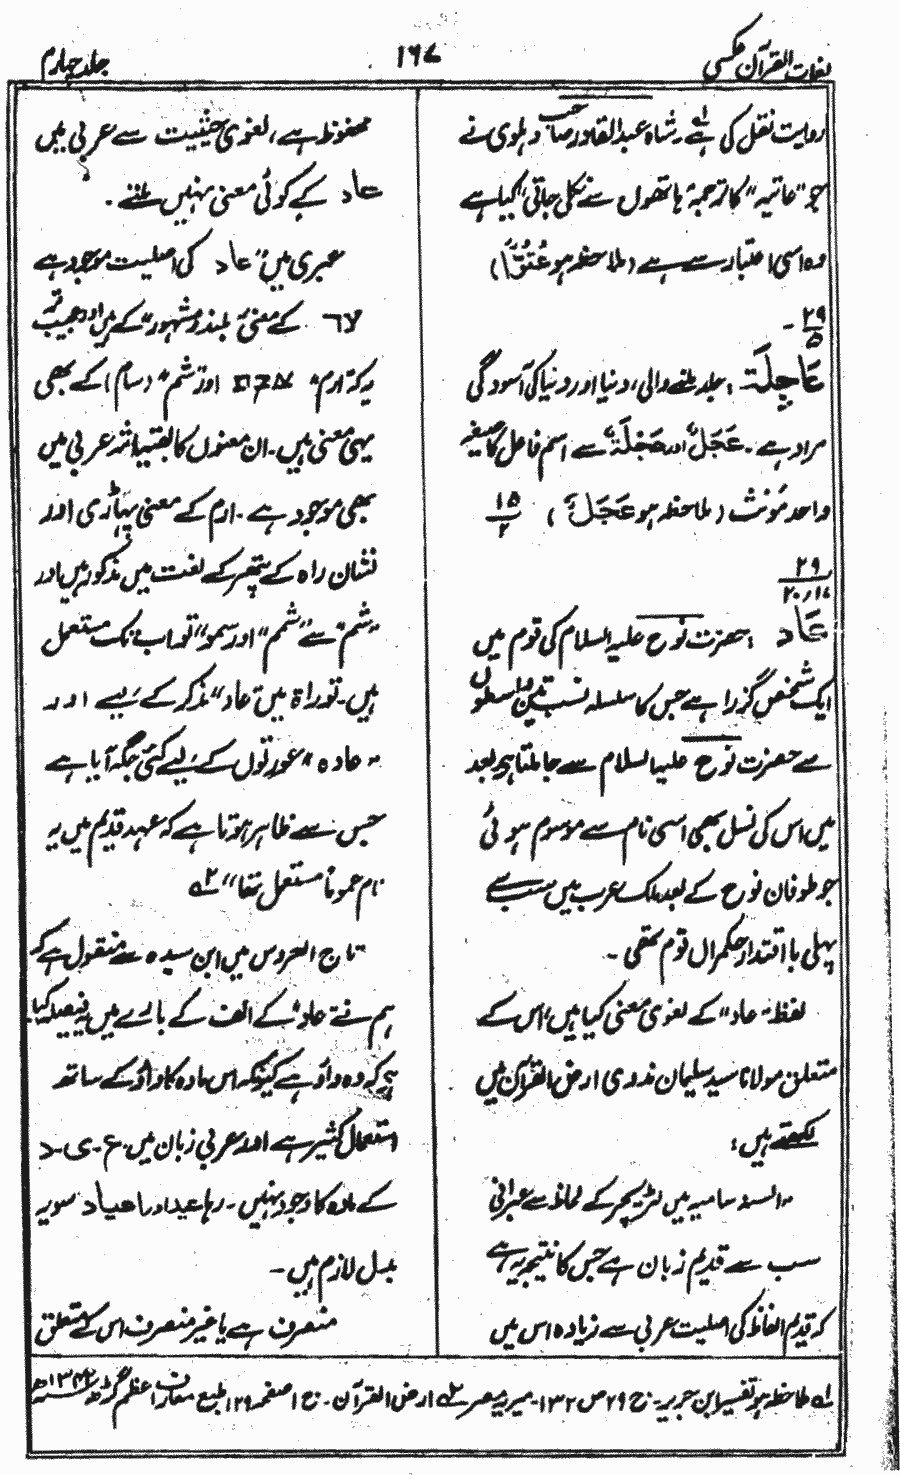 لغات القرآن عکسی
۱۹۷
جلد چہارم
روایت نقل کی ہے۔ شاہ عبد القادر صاحب دہلوی نے
جو "عاتیہ" کا ترجمہ "ہاتھوں سے نکلی جاتی" کیا ہے
وہ اسی اعتبار سے ہے (ملاحظہ ہو عُتُوًّا)
۲۹
۵
عَاجِلَۃ : جلد ملنے والی، دنیا اور دنیا کی آسودگی
مراد ہے۔ عَجَلٌ اور عَجَلَۃٌ سے اسم فاعل کا صیغہ
واحد مؤنث (ملاحظہ ہو عَجَلَ) ۱۵
۲
۲۹
عَاد : حضرت نوح علیہ السلام کی قوم میں
ایک شخص گزرا ہے جس کا سلسلہ نسب تین واسطوں
سے حضرت نوح علیہ السلام سے جا ملتا ہے بعد
میں اس کی نسل بھی اسی نام سے موسوم ہوئی
جو طوفان نوح کے بعد ملک عرب میں سب سے
پہلی با اقتدار حکمراں قوم تھی۔
لفظ "عاد" کے لغوی معنی کیا ہیں؟ اس کے
متعلق مولانا سید سلیمان ندوی ارض القرآن میں
لکھتے ہیں:
"السنہ سامیہ میں لٹریچر کے لحاظ سے عبرانی
سب سے قدیم زبان ہے جس کا نتیجہ یہ ہے
کہ قدیم الفاظ کی اصلیت عربی سے زیادہ اس میں
محفوظ ہے، لغوی حیثیت سے عربی میں
عاد کے کوئی معنی نہیں ملتے۔
عبری میں "عاد" کی اصلیت موجود ہے
کے معنی "بلند و مشہور" کے ہیں اور عجیب تر
یہ کہ "ارم" اور "شم" (سام) کے بھی
یہی معنی ہیں۔ ان معنوں کا بقیہ اثر عربی میں
بھی موجود ہے۔ ارم کے معنی پہاڑی اور
نشان راہ کے پتھر کے لغت میں مذکور ہیں اور
"شم" سے "شمم" اور "سمو" تو اب تک مستعمل
ہیں۔ توراۃ میں "عاد" مذکر کے لیے اور
"عادہ" عورتوں کے لیے کئی جگہ آیا ہے
جس سے ظاہر ہوتا ہے کہ عہد قدیم میں یہ
نام عموماً مستعمل تھا" ۲ھ
تاج العروس میں ابن سیدہ سے منقول ہے کہ
ہم نے "عاد" کے الف کے بارے میں یہ فیصلہ کیا
ہے کہ وہ واؤ ہے کیونکہ اس مادہ کا واؤ کے ساتھ
استعمال کثیر ہے اور عربی زبان میں ع۔ی۔د
کے مادہ کا وجود نہیں۔ رہا عید اور اعیاد سو یہ
بدل لازم ہیں۔
منصرف ہے یا غیر منصرف اس کے متعلق
۱ھ ملاحظہ ہو تفسیر ابن جریر۔ ج ۲۹ ص ۱۳۲۔ میریہ مصر ۲ھ ارض القرآن۔ ج ۱ صفحہ ۱۲۹ طبع معارف اعظم گڑھ